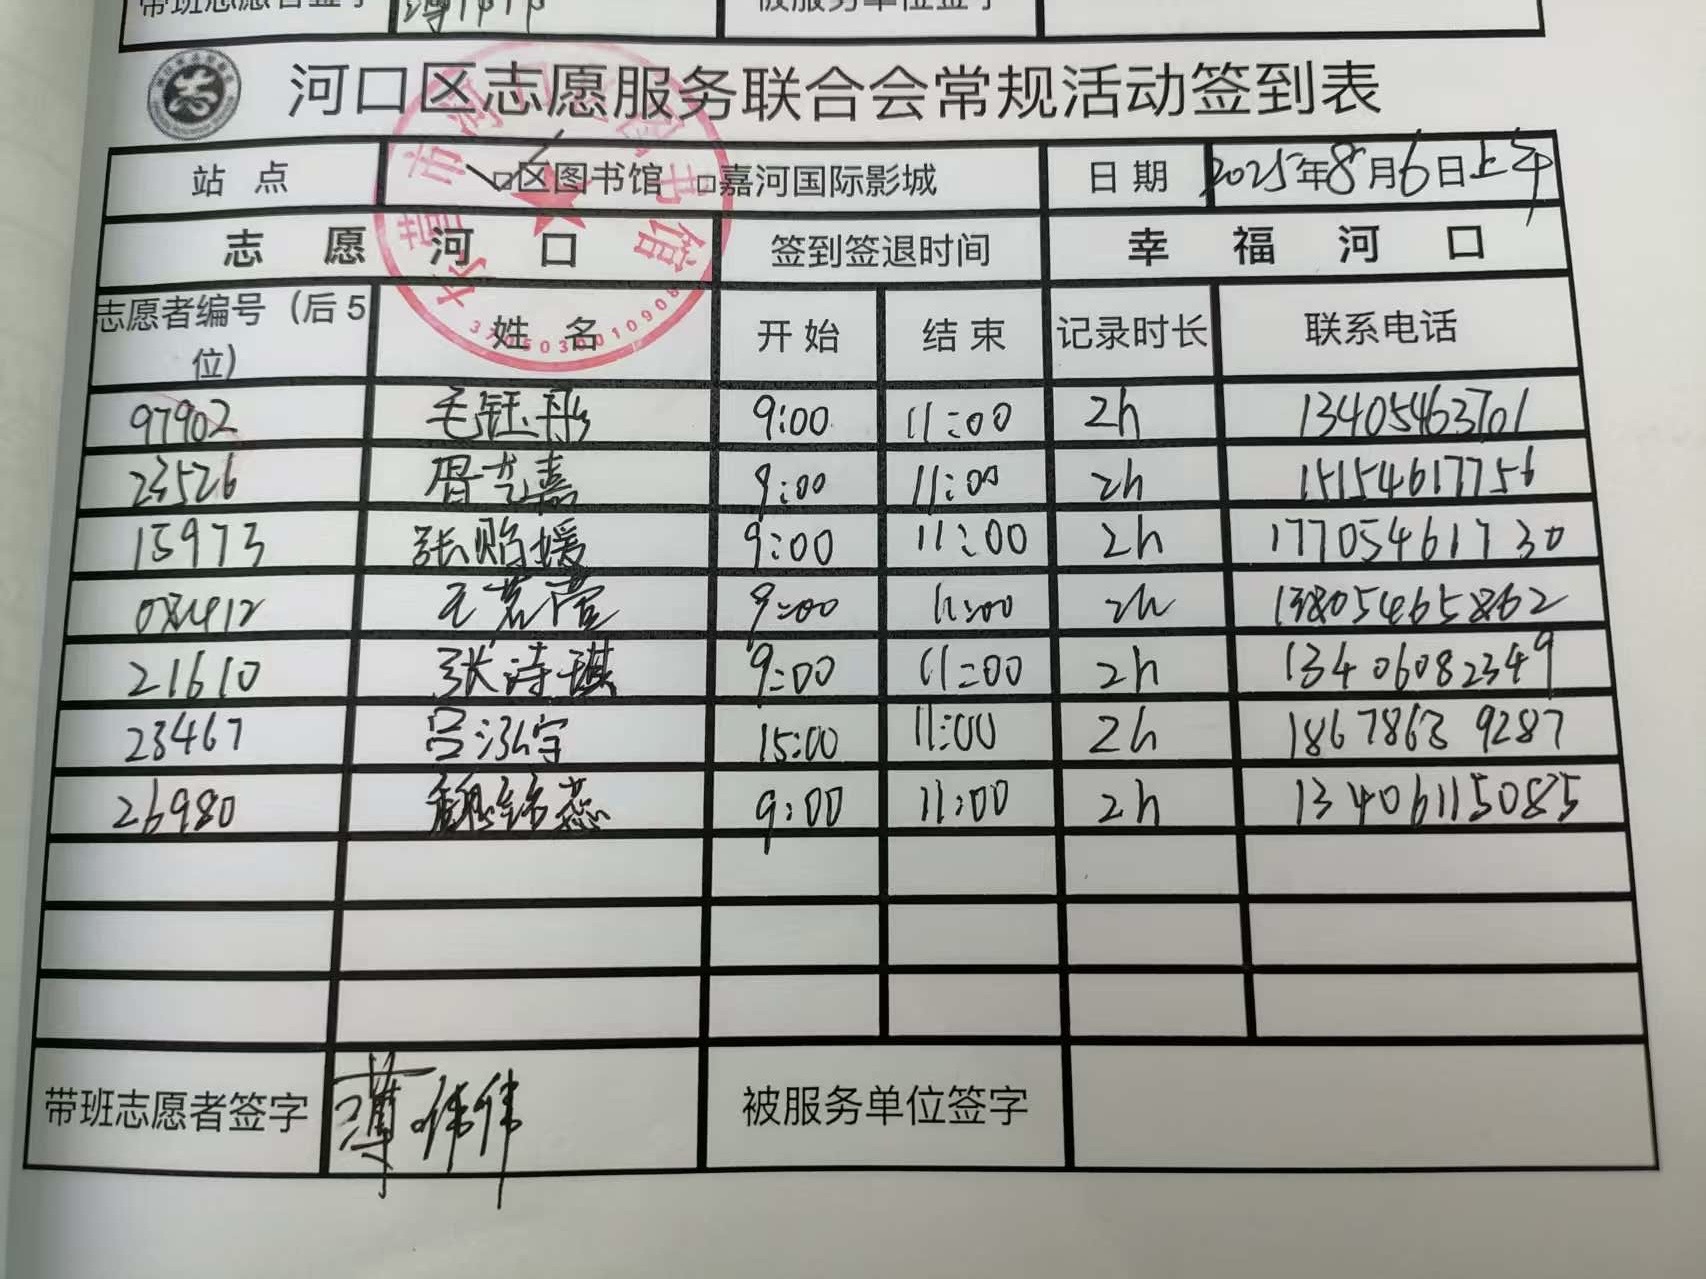 带班志愿者签字 薄伟伟 被服务单位签字
河口区志愿服务联合会常规活动签到表
站 点 □区图书馆 □嘉河国际影城 日 期 2025年8月6日上午
志 愿 河 口 签到签退时间 幸 福 河 口
志愿者编号（后5位） 姓 名 开 始 结 束 记录时长 联系电话
97902 毛钰彤 9:00 11:00 2h 13405463701
23526 胥艺嘉 9:00 11:00 2h 15154617756
15973 张贻媛 9:00 11:00 2h 17705461730
王茗萱 9:00 11:00 2h 13805465862
21610 张诗琪 9:00 11:00 2h 13406082349
23467 吕泓宇 15:00 11:00 2h 18678639287
26980 魏锦蕊 9:00 11:00 2h 13406115085
带班志愿者签字 薄伟伟 被服务单位签字
东营市河口区图书馆